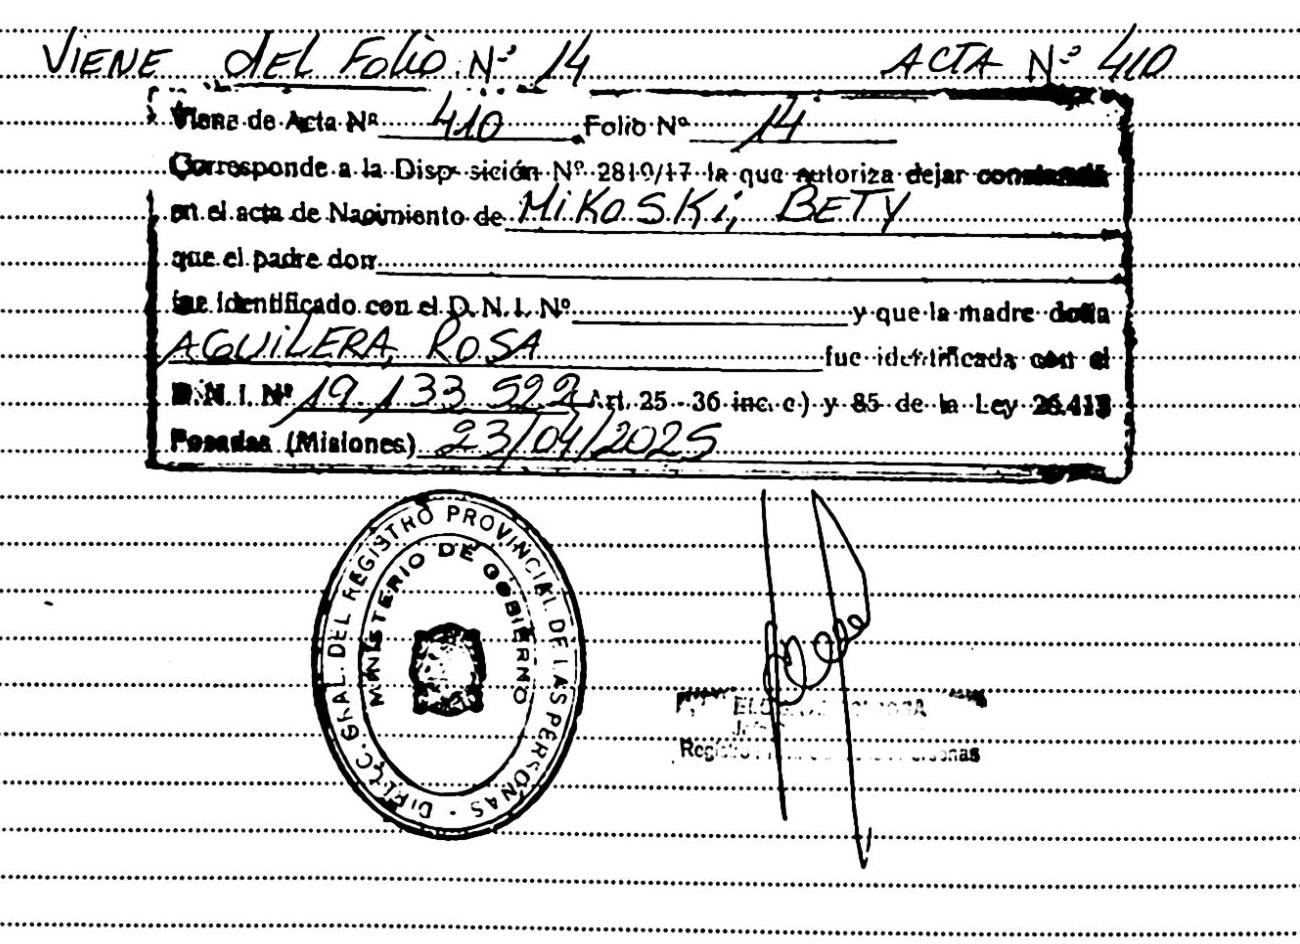 VIENE del Folio Nº 14 ACTA Nº 410
Viene de Acta Nº 410 Folio Nº 14
Corresponde a la Disposición Nº 2810/17 la que autoriza dejar constancia
en el acta de Nacimiento de MiKOSKi, BETY
que el padre don
fue identificado con el D.N.I. Nº y que la madre doña
AGUiLERA, ROSA fue identificada con el
D.N.I. Nº 19.133.522 Art. 25 - 36 inc. c) y 85 de la Ley 26.413
Posadas (Misiones) 23/04/2025
DIRECC. GRAL. DEL REGISTRO PROVINCIAL DE LAS PERSONAS -
MINISTERIO DE GOBIERNO